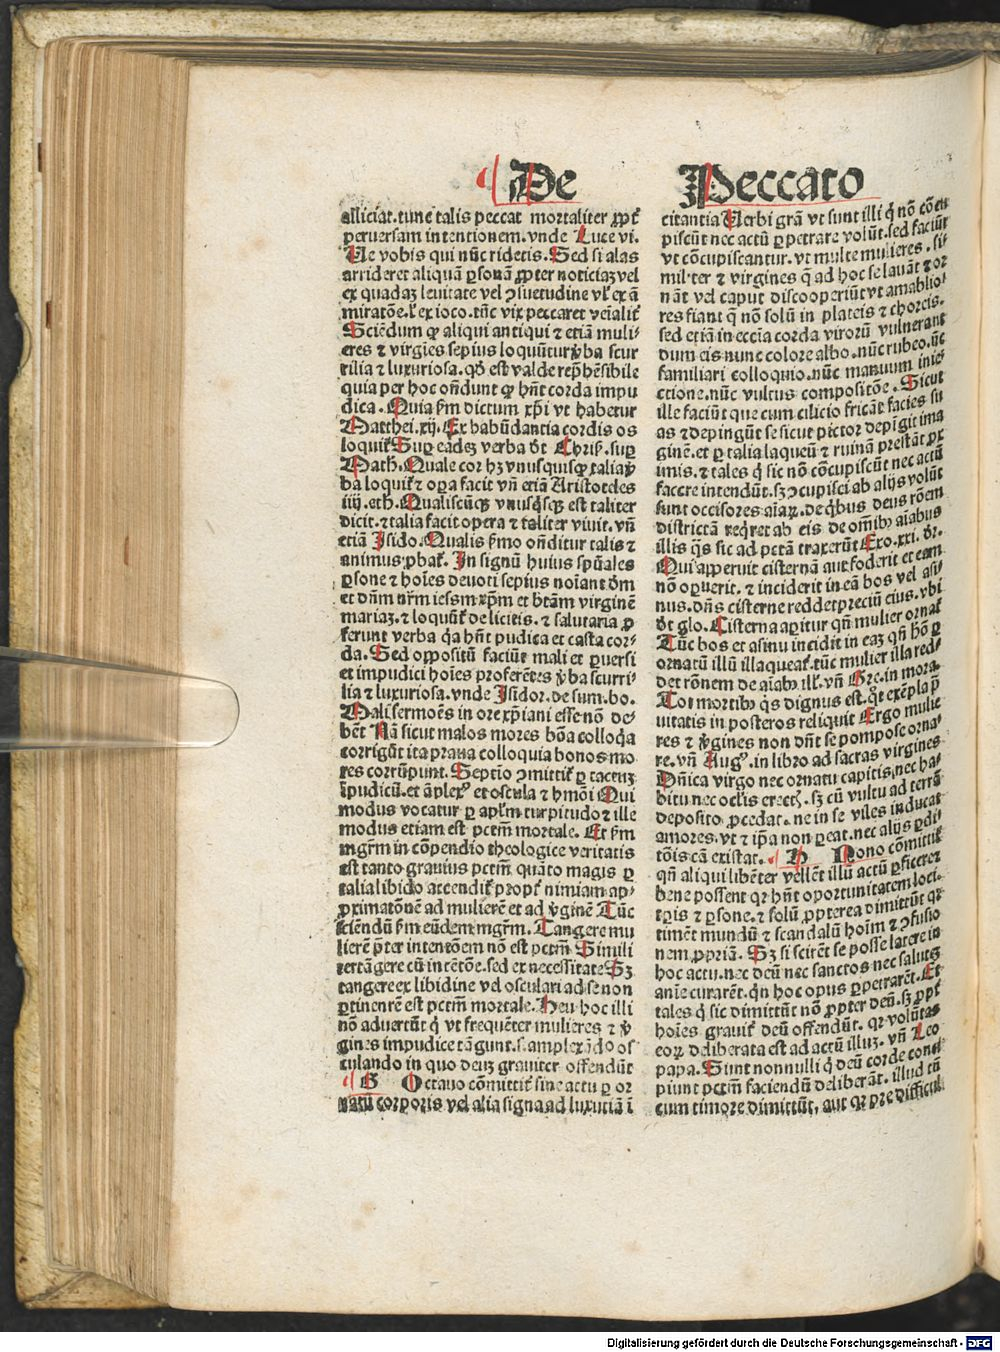 De Peccato
alliciat. tunc talis peccat mortaliter ꝓpt̛
peruersam intentionem. vnde Luce vi.
Ue vobis qui nūc ridetis. Sed si alas
arrideret aliquā ꝑsonā ꝓpter noticiaꝫ vel
ex quadaꝫ leuitate vel ↄsuetudine vl̛ ex ā
miratōe. l̛ ex ioco. tūc vix peccaret veīalit̛
Sciēdum ꝙ aliqui antiqui ⁊ etiā muli-
eres ⁊ virgīes sepius loquūtur v̛ba scur
rilia ⁊ luxuriosa. qd̛ est valde rep̄hēsibile
quia per hoc oñdunt ꝙ hn̄t corda impu
dica. Quia ẜm dictum xp̄i vt habetur
Matthei. xij. Ex habūdantia cordis os
loquit̛ Suꝑ eadeꝫ verba d̛t Chris̛. suꝑ
Math̛. Quale cor hꝫ vnusquisqꝫ talia v̛
ba loquit̛ ⁊ oꝑa facit vn̄ etiā Aristoteles
iiij. eth̛. Qualiscūqꝫ vnusq̛sqꝫ est taliter
dicit. ⁊ talia facit opera ⁊ taliter viuit. vn̄
etiā Isido. Qualis ẜmo oñditur talis ⁊
animus ꝓbat̛. In signū huius sp̄uales
ꝑsone ⁊ hoīes deuoti sepius noīant dm̄
et dn̄m nr̄m iesum xp̄m et btām virginē
mariaꝫ. ⁊ loquūt̛ de licitis. ⁊ salutaria ꝓ
ferunt verba q̛a hn̄t pudica et casta cor-
da. Sed oppositū faciūt mali et ꝑuersi
et impudici hoīes proferētes v̛ba scurri-
lia ⁊ luxuriosa. vnde Isidor. de sum. bo.
Mali sermoēs in ore xp̄iani esse nō de-
bēt Nā sicut malos mores bōa colloq̛a
corrigūt ita praua colloquia bonos mo
res corrūpunt. Septīo ↄmittit̛ ꝑ tactuꝫ
īpudicū. et āplexꝰ et oscula ⁊ hm̄oi Qui
modus vocatur ꝑ apl̄m turpitudo ⁊ ille
modus etiam est pctm̄ mortale. Et ẜm
mgr̄m in cōpendio theologice veritatis
est tanto grauius pctm̄ quāto magis ꝑ
talia libido accendit̛ propt̛ nimiam ap-
ꝓximatōnē ad mulierē et ad v̛ginē Tūc
sciēdū ẜm eūdem mgr̄m. Tangere mu
lierē p̄ter intentōem nō est pctm̄ Simili
ter tāgere cū intētōe. sed ex necessitate Sꝫ
tangere ex libidine vel osculari ad se non
ꝑtinentē est pctm̄ mortale. Heu hoc illi
nō aduertūt q̛ vt frequēter mulieres ⁊ v̛
gines impudice tāgunt. s. amplexādo os
culando in quo deuꝫ grauiter offendūt
G Octauo cōmittit̛ sine actu ꝑ or
natū corporis vel alia signa ad luxuriā ī
citantia Uerbi grā vt sunt illi q̛ nō cōcu
piscūt nec actū ꝑpetrare volūt. sed faciūt
vt cōcupiscantur. vt multe mulieres. si-
militer ⁊ virgines q̄ ad hoc se lauāt ⁊ or
nāt vel caput discooperiūt vt amablio-
res fiant q̄ nō solū in plateis ⁊ choreis.
sed etiā in eccīa corda virorū vulnerant
dum eis nunc colore albo. nūc rubeo. nūc
familiari colloquio. nūc manuum inie
ctione. nūc vultus compositōe. Sicut
ille faciūt que cum cilicio fricāt facies su
as ⁊ depingūt se sicut pictor depīgit ima
ginē. et ꝑ talia laqueū ⁊ ruinā prestāt ꝓx
imis. ⁊ tales q̛ sic nō cōcupiscūt nec actū
facere intendūt. sꝫ ↄcupisci ab alijs volūt
sunt occisores aīaꝝ. de qb̛us deus rōem
districtā req̛ret ab eis de om̄ibꝫ aīabus
illis q̛s sic ad pctā traxerūt Exo. xxi. d̛r.
Qui apperuit cisternā aut foderit et eam
nō oꝑuerit. ⁊ inciderit in eā bos vel asi-
nus. dn̄s cisterne reddet preciū eius. vbi
d̛t glo. Cisterna aꝑitur qn̄ mulier ornat̛
Tūc bos et asinu incidit in eaꝫ qn̄ hō ꝑ
ornatū illū illaqueat̛. tūc mulier illa red-
det rōnem de aīabꝫ ill̛. vn̄ Gre. in mora.
Tot mortibꝫ q̛s dignus est. q̛t exēpla p̄
uitatis in posteros reliquit Ergo mulie
res ⁊ v̛gines non dn̄t se pompose orna-
re. vn̄ Augꝰ. in libro ad sacras virgines
Dn̄ica virgo nec ornatu capitis. nec ha-
bitu nec ocl̛is erectꝭ. sꝫ cū vultu ad terrā
deposito ꝓcedat. ne in se viles inducat
amores. vt ⁊ ip̄a non ꝑeat. nec alijs ꝑdi-
tōis cā existat. H Nono cōmittit̛
qn̄ aliqui libēter vellēt illū actū ꝑficere ⁊
bene possent qꝛ hn̄t oportunitatem loci.
tp̄is ⁊ ꝑsone. ⁊ solū ꝓpterea dimittūt qꝛ
timēt mundū ⁊ scandalū hoīm ⁊ ↄfusio
nem ꝓpriā. Sꝫ si scirēt se posse latere in
hoc actu. nec deū nec sanctos nec salutē
anīe curarēt. qn̄ hoc opus ꝑpetrarēt. Et
tales q̛ sic dimittūt nō ꝓpter deū. sꝫ ꝓpt̛
hoīes grauit̛ deū offendūt. qꝛ volūtas
eoꝝ deliberata est ad actū illuꝫ. vn̄ Leo
papa. Sunt nonnulli q̛ deū corde conci
piunt pctm̄ faciendū deliberāt. illud tn̄
cum timore dimittūt, aut qꝛ pre difficul
Digitalisierung gefördert durch die Deutsche Forschungsgemeinschaft - DFG